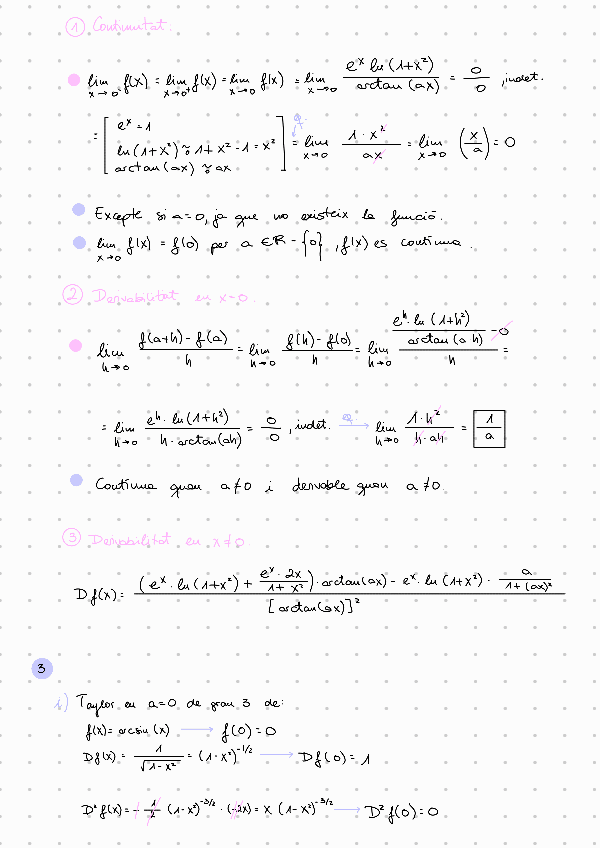 ① Continuïtat.
lim x→0⁻ f(x) = lim x→0⁺ f(x) = lim x→0 f(x) = lim x→0 eˣ ln(1+x²) / arctan(ax) = 0/0, indet.
= [ eˣ = 1
ln(1+x²) ≈ 1+x²-1 = x²
arctan(ax) ≈ ax ] eq. = lim x→0 1·x² / ax = lim x→0 (x/a) = 0
Excepte si a=0, ja que no existeix la funció.
lim x→0 f(x) = f(0) per a ∈ ℝ - {0}, f(x) es contínua.
② Derivabilitat en x=0.
lim h→0 f(a+h) - f(a) / h = lim h→0 f(h) - f(0) / h = lim h→0 (eʰ·ln(1+h²) / arctan(a·h) - 0) / h =
= lim h→0 eʰ·ln(1+h²) / h·arctan(ah) = 0/0, indet. eq. → lim h→0 1·h² / h·ah = 1/a
Contínua quan a≠0 i derivable quan a≠0.
③ Derivabilitat en x≠0.
Df(x) = ((eˣ·ln(1+x²) + eˣ·2x / 1+x²)·arctan(ax) - eˣ·ln(1+x²)·a / 1+(ax)²) / [arctan(ax)]²
3
i) Taylor en a=0 de grau 3 de:
f(x) = arcsin(x) → f(0)=0
Df(x) = 1 / √(1-x²) = (1-x²)^(-1/2) → Df(0)=1
D²f(x) = -1/2 (1-x²)^(-3/2) · (-2x) = x (1-x²)^(-3/2) → D²f(0)=0